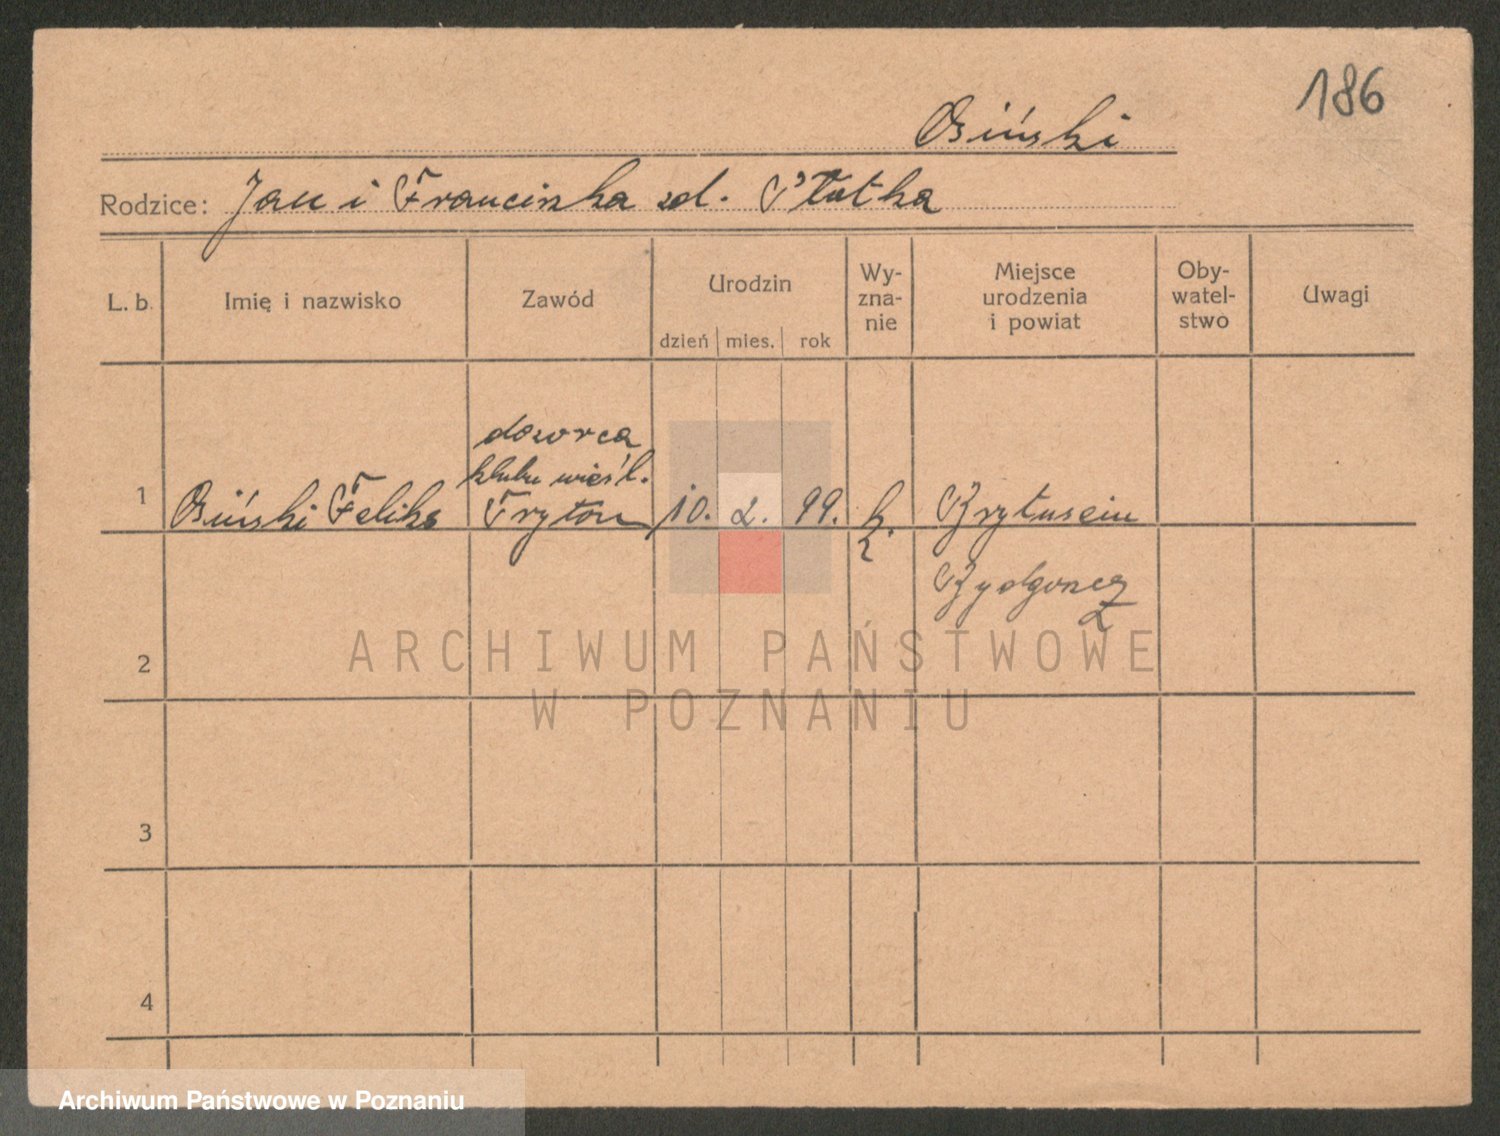 186
Osiński
Rodzice: Jan i Franciszka zd. Płotka
L. b.
Imię i nazwisko
Zawód
Urodzin
dzień mies. rok
Wy-
zna-
nie
Miejsce
urodzenia
i powiat
Oby-
watel-
stwo
Uwagi
1
Osiński Feliks
dozorca
klubu wiośl.
Tryton
10. 2. 99.
k.
Bydgoszcz
2
3
4
ARCHIWUM PAŃSTWOWE
W POZNANIU
Archiwum Państwowe w Poznaniu